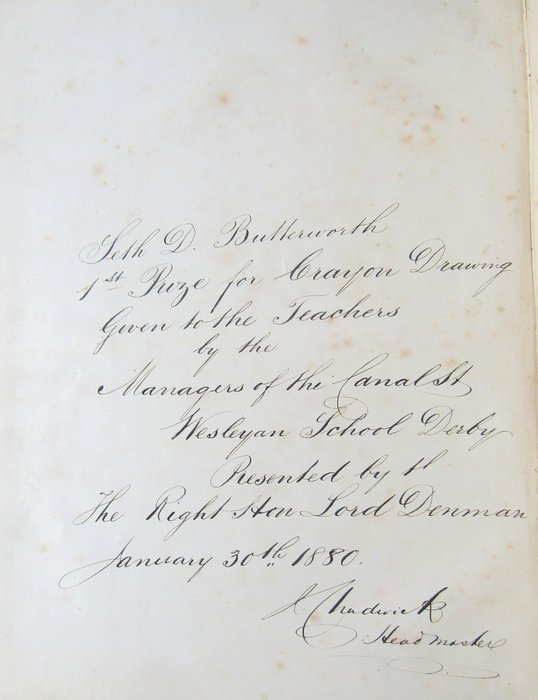 Seth D. Butterworth
1st Prize for Crayon Drawing
Given to the Teachers
by the
Managers of the Canal St
Wesleyan School Derby
Presented by th
The Right Hon Lord Denman
January 30th 1880.
J Chadwick
Head master